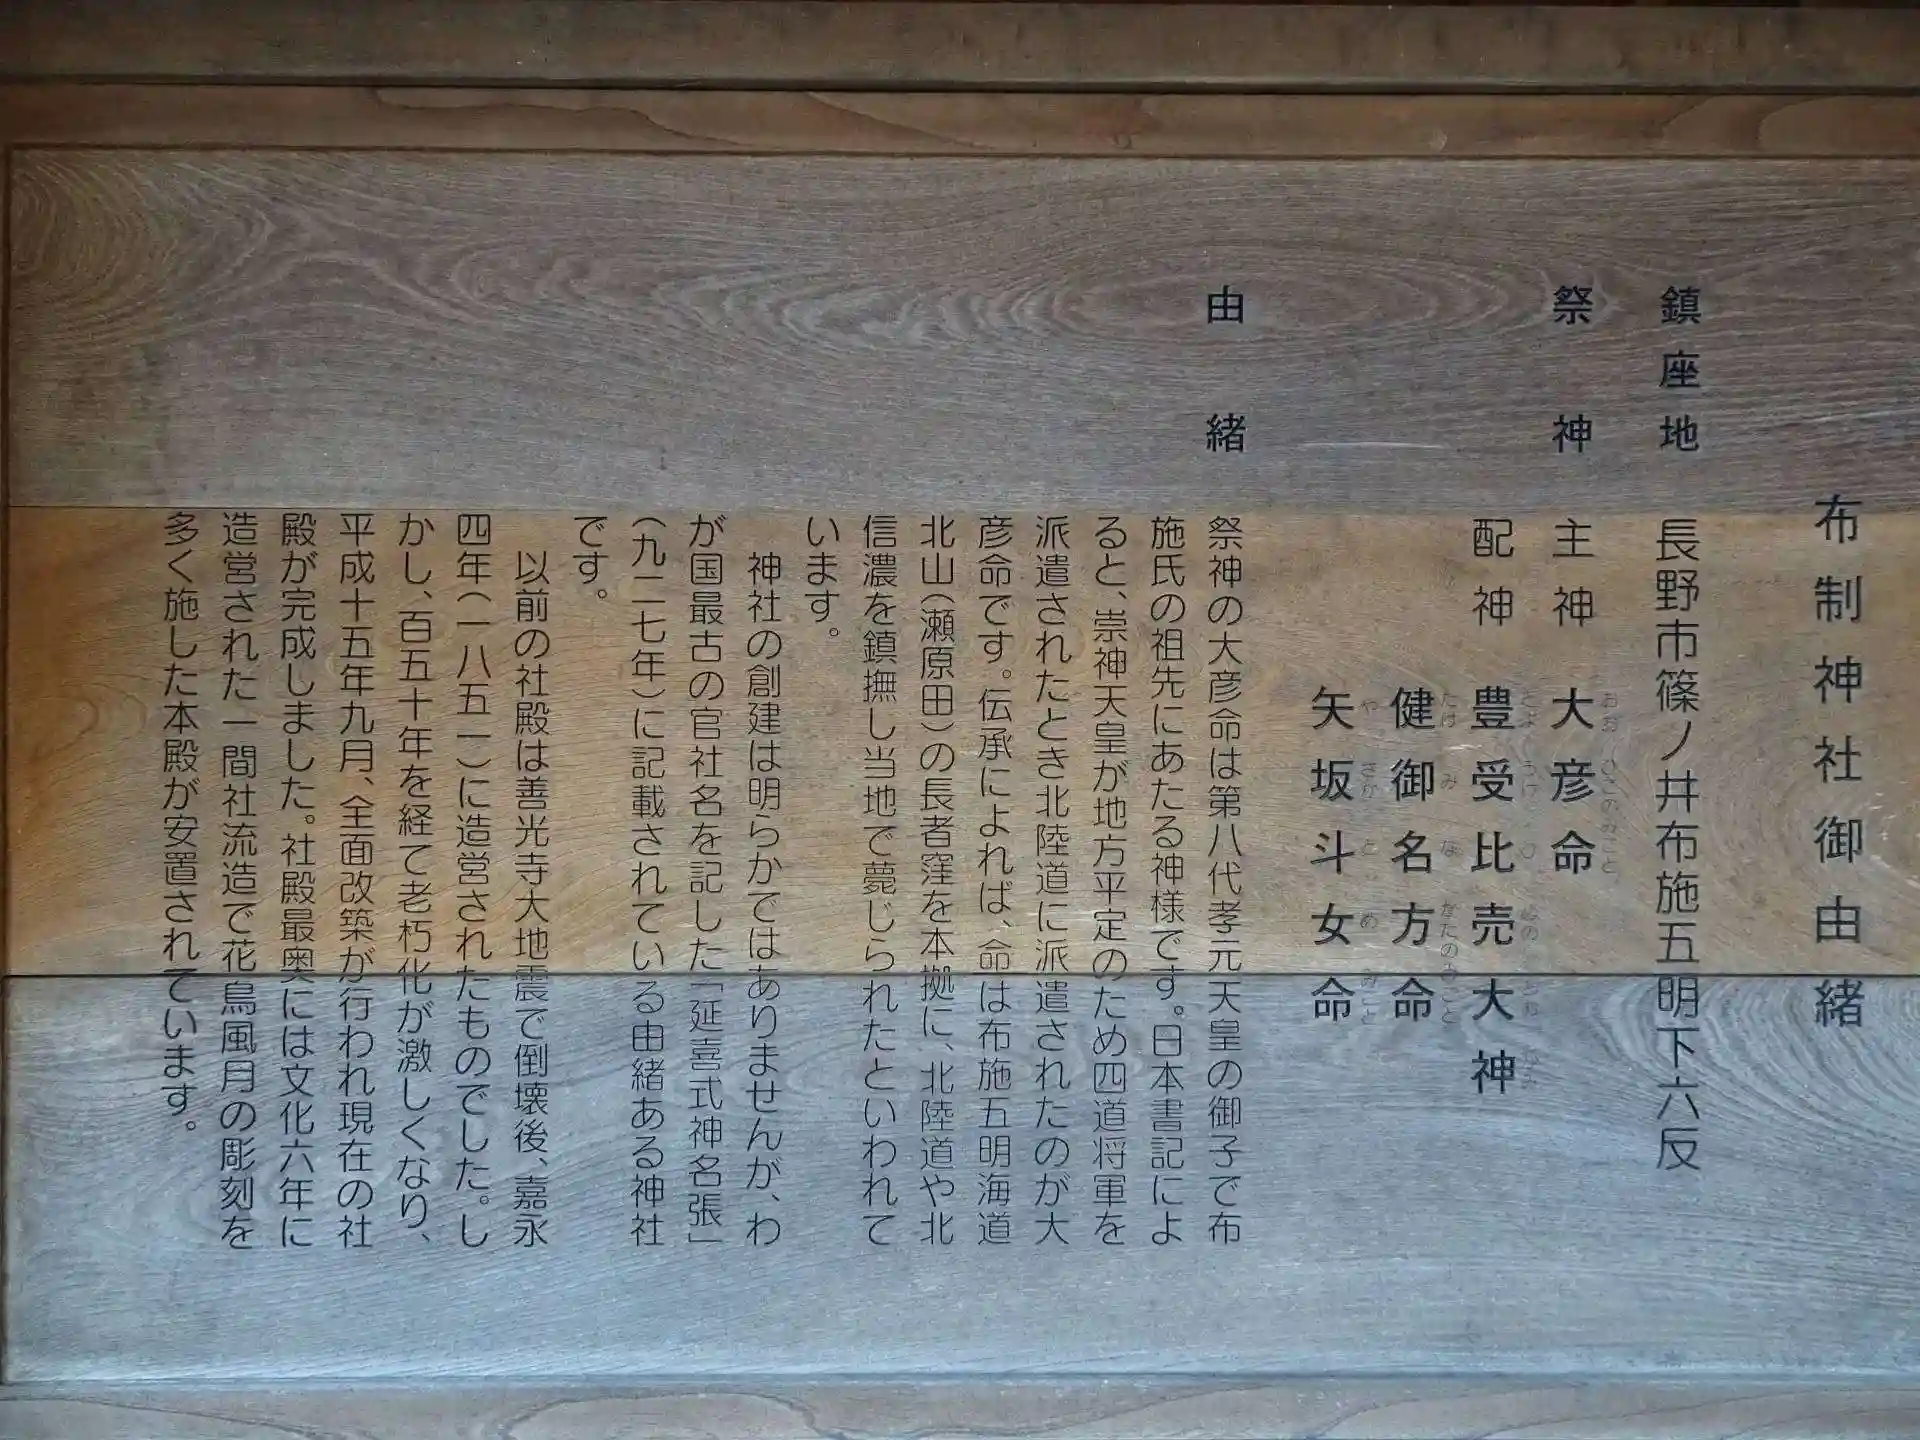 布制神社御由緒
鎮座地 長野市篠ノ井布施五明下六反
祭神 主神 大彦命
おお ひこのみこと
配神 豊受比売大神
とよ うけ ひ めの おお かみ
健御名方命
たけ み な かたのみこと
矢坂斗女命
や さか と め みこと
由緒 祭神の大彦命は第八代孝元天皇の御子で布
施氏の祖先にあたる神様です。日本書記によ
ると、崇神天皇が地方平定のため四道将軍を
派遣されたとき北陸道に派遣されたのが大
彦命です。伝承によれば、命は布施五明海道
北山（瀬原田）の長者窪を本拠に、北陸道や北
信濃を鎮撫し当地で薨じられたといわれて
います。
神社の創建は明らかではありませんが、わ
が国最古の官社名を記した「延喜式神名張」
（九二七年）に記載されている由緒ある神社
です。
以前の社殿は善光寺大地震で倒壊後、嘉永
四年（一八五一）に造営されたものでした。し
かし、百五十年を経て老朽化が激しくなり、
平成十五年九月、全面改築が行われ現在の社
殿が完成しました。社殿最奥には文化六年に
造営された一間社流造で花鳥風月の彫刻を
多く施した本殿が安置されています。